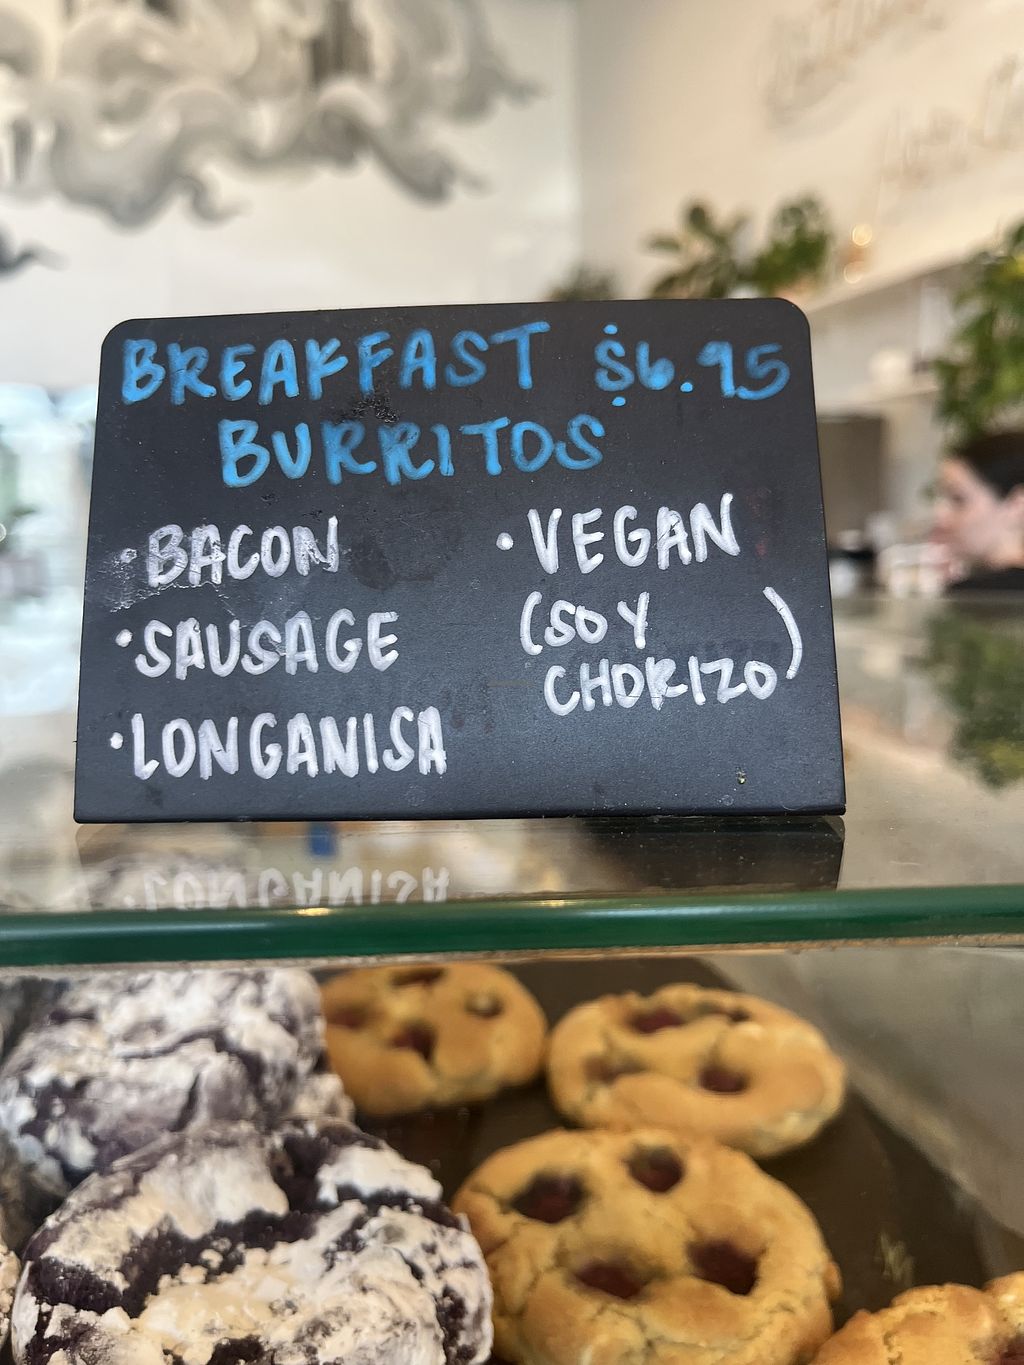 BREAKFAST $6.95
BURRITOS
• BACON
• SAUSAGE
• LONGANISA
• VEGAN
(SOY
CHORIZO)